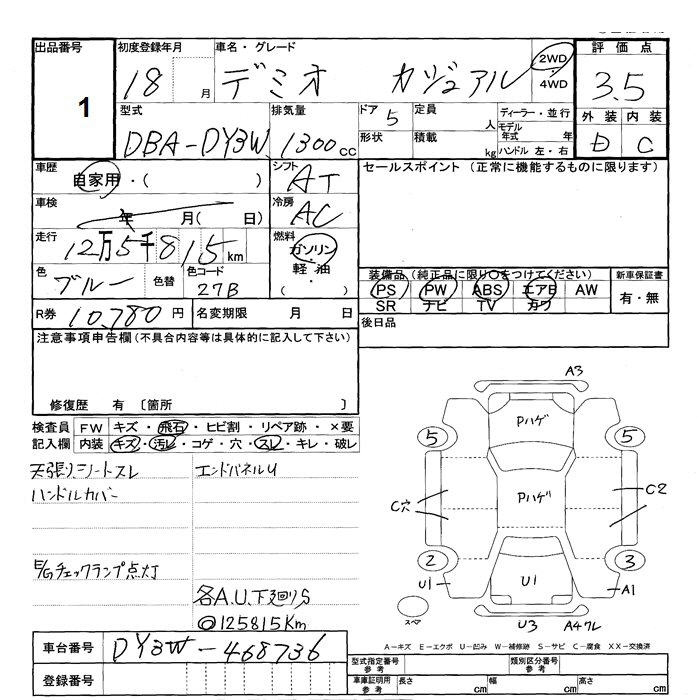 出品番号 初度登録年月 車名・グレード 2WD 評価点
1 18 月 デミオ カジュアル ・4WD 3.5
型式 排気量 ドア 5 定員 人 ディーラー・並行 外装 内装
DBA-DY3W 1300cc 形状 積載 kg モデル年式 年 D C
ハンドル 左・右
車歴 自家用・( ) シフト AT セールスポイント (正常に機能するものに限ります)
車検 年 月( 日) 冷房 AC
走行 12万5千815km 燃料 ガソリン・軽油・( )
色 ブルー 色替 色コード 27B
装備品(純正品に限り○をつけてください) 新車保証書
PS PW ABS エアB AW 有・無
SR ナビ TV カワ
R券 10,780円 名変期限 月 日 後日品
注意事項申告欄(不具合内容等は具体的に記入して下さい)
修復歴 有 〔箇所 〕
検査員記入欄 FW キズ・飛石・ヒビ割・リペア跡・×要
内装 キズ・汚レ・コゲ・穴・スレ・キレ・破レ
天張り、シートスレ エンドパネルU
ハンドルカバー
E/Gチェックランプ点灯
各A.U.下廻りS
◎125815Km
A3
Pハゲ
5 5
C穴 Pハゲ C2
2 3
U1 U1 A1
スペア U3 A4ワレ
A-キズ E-エクボ U-凹み W-補修跡 S-サビ C-腐食 XX-交換済
車台番号 DY3W-468736
型式指定番号 参考 類別区分番号 参考
登録番号 車庫証明用 参考 長さ cm 幅 cm 高さ cm